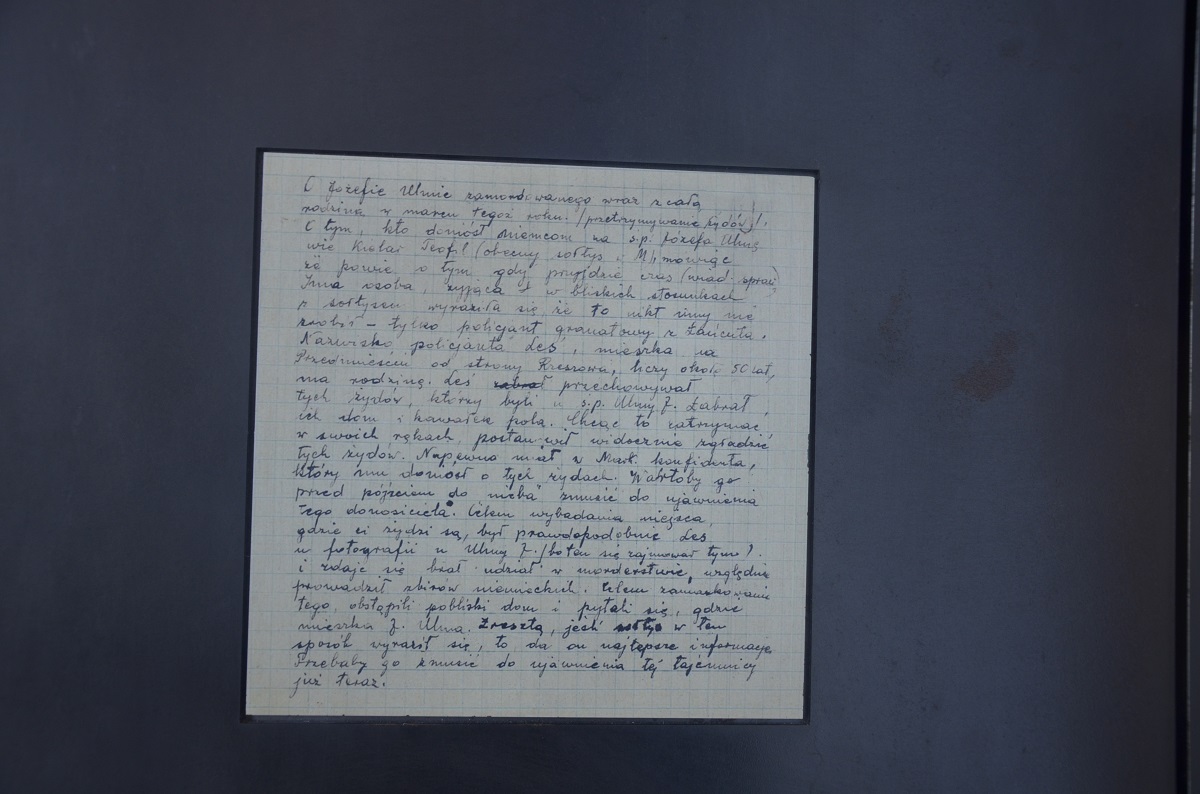 O Józefie Ulmie zamordowanego wraz z całą
rodziną w marcu tegoż roku. /przetrzymywanie żydów/.
O tym, kto doniósł niemcom za s.p. Józefa Ulmę
wie Kielar Teofil (obecny sołtys w M), mówiąc
że powie o tym gdy przyjdzie czas (wiad. spraw)
Inna osoba, żyjąca w bliskich stosunkach
z sołtysem wyraziła się że to nikt inny nie
zrobił – tylko policjant granatowy z Łańcuta.
Nazwisko policjanta Leś, mieszka na
Przedmieściu od strony Rzeszowa, liczy około 50 lat,
ma rodzinę. Leś zabrał przechowywał
tych żydów, którzy byli u s.p. Ulmy J. Zabrał
ich dom i kawałek pola. Chcąc to zatrzymać
w swoich rękach, postanowił widocznie zgładzić
tych żydów. Napewno miał w Mark. konfidenta,
który mu doniósł o tych żydach. Wartoby go
przed pójściem „do nieba" zmusić do ujawnienia
tego donosiciela. Celem wybadania miejsca,
gdzie ci żydzi są, był prawdopodobnie Leś
u fotografii u Ulmy J. /bo ten się zajmował tym/.
i zdaje się brał udział w morderstwie, względnie
prowadził zbirów niemieckich. Celem zamaskowania
tego, obstąpili pobliski dom i pytali się, gdzie
mieszka J. Ulma. Zresztą, jeśli sołtys w ten
sposób wyraził się, to da on najlepsze informacje
Trzebaby go zmusić do ujawnienia tej tajemnicy
już teraz.